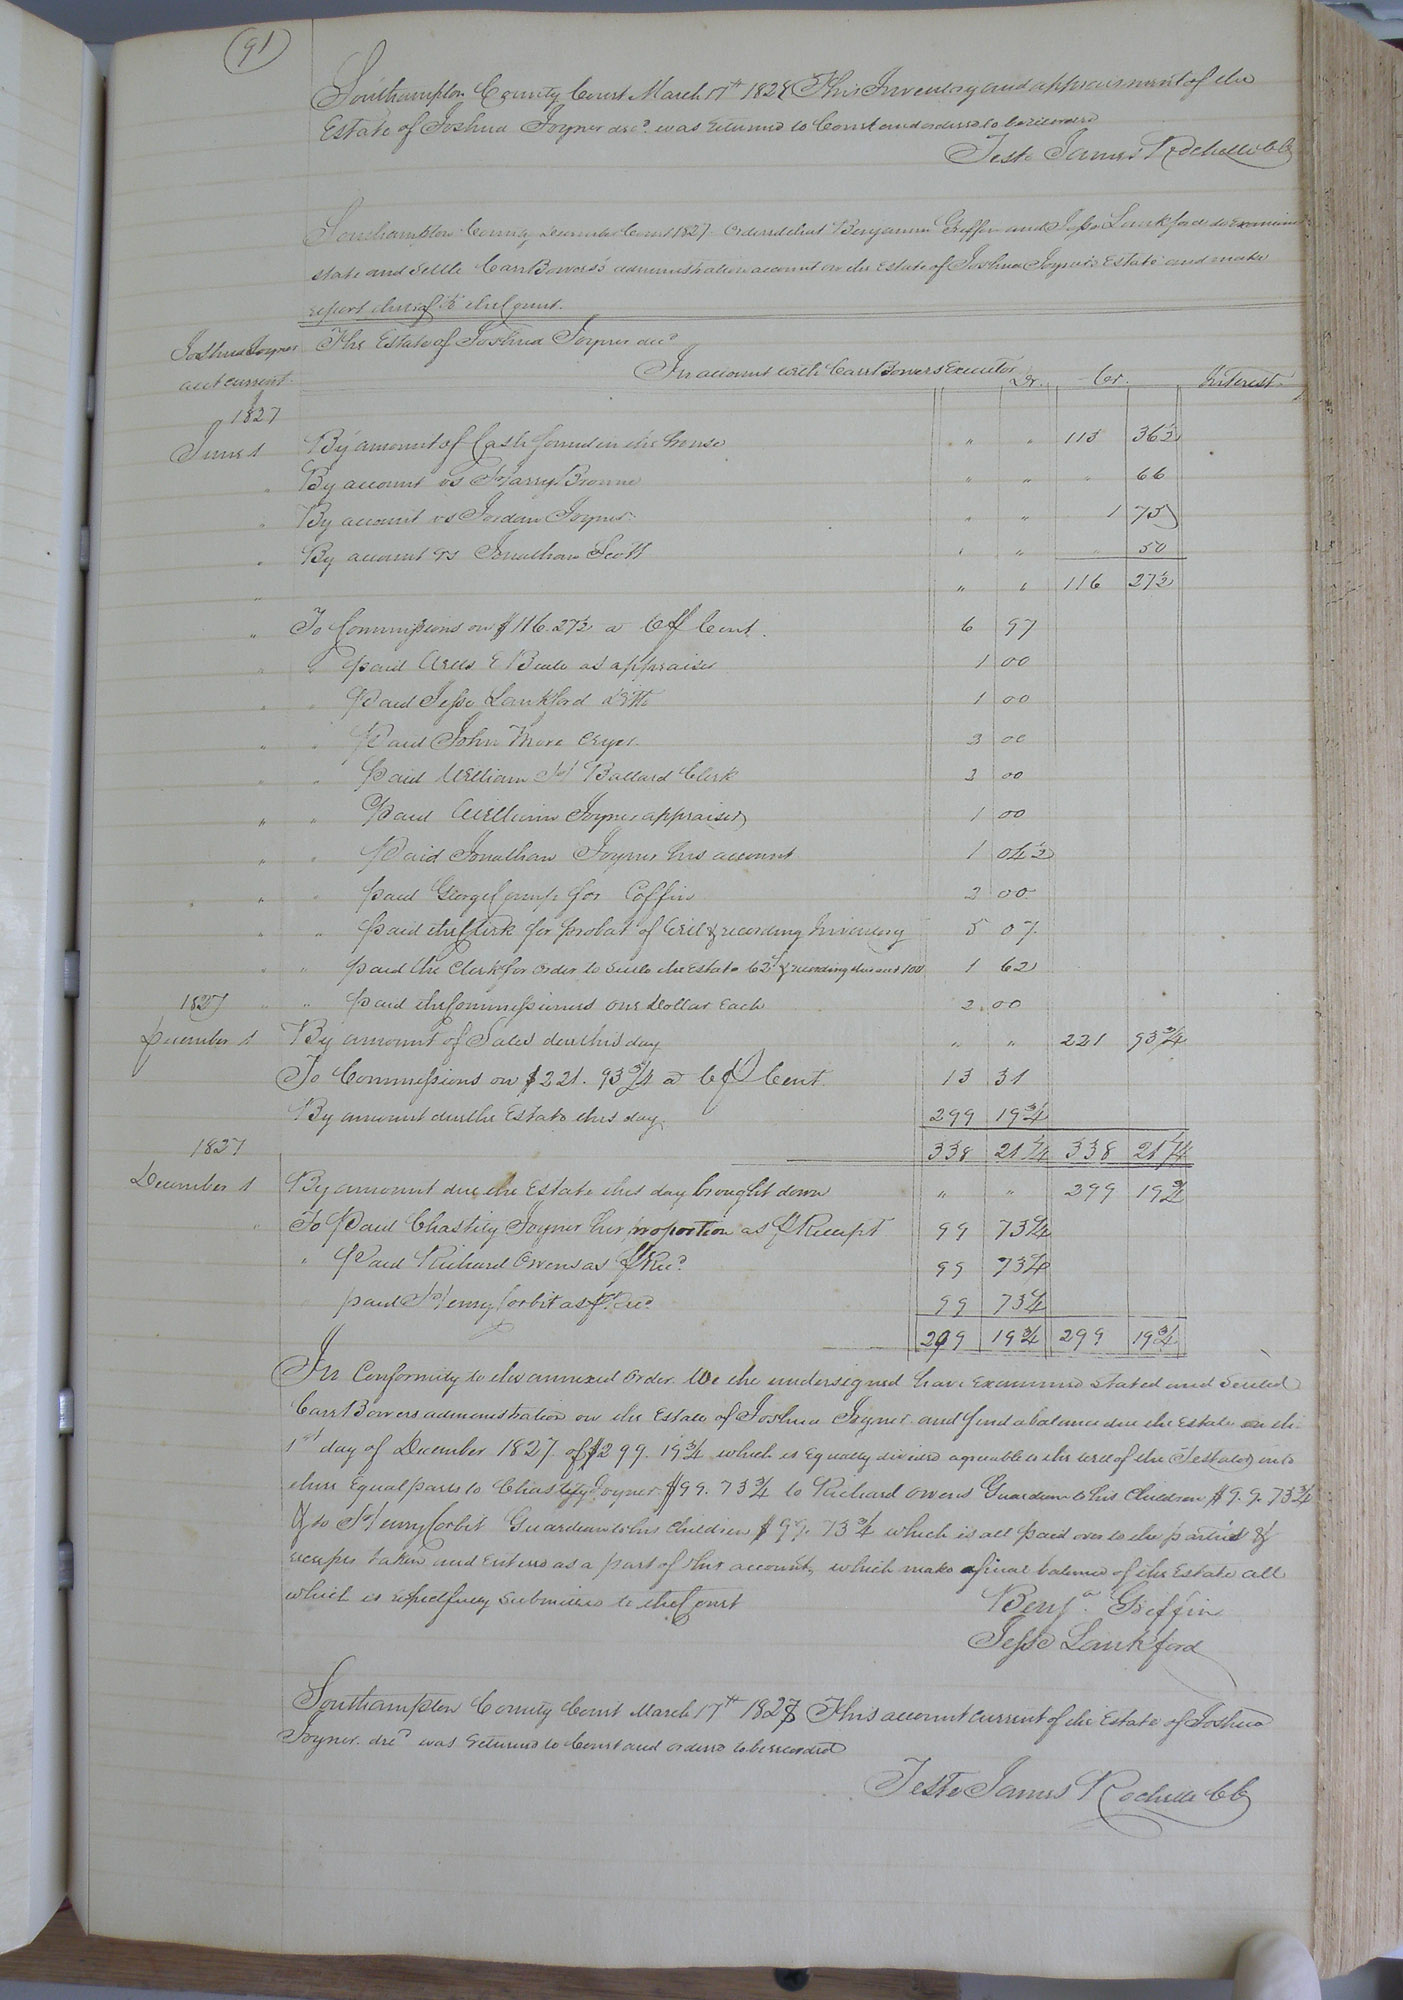 91
Southampton County Court March 17th 1828 This Inventory and appraisment of the
Estate of Joshua Joyner decd. was returned to Court and ordered to be recorded
Teste James Rochelle CC
Southampton County December Court 1827 Ordered that Benjamin Griffin and Jesse Lankford do Examine
state and Settle Carr Bowers's administration account on the Estate of Joshua Joyner's Estate and make
report thereof to the Court.
Joshua Joyner The Estate of Joshua Joyner decd
acct current In account with Carr Bowers Executor Dr. Cr. Interest
1827
June 1 By amount of Cash found in the house " " 113 36½
" By account vs Harry Browne " " " 66
" By account vs Jordan Joyner " " 1 75
" By account vs Jonathan Scott " " " 50
" " " 116 27½
" To Commissions on $116.27½ a 6 p Cent. 6 97
" " paid E Beale as appraiser 1 00
" " Paid Jesse Lankford ditto 1 00
" " Paid John Cryer 3 00
" " paid William H Ballard Clerk 2 00
" " Paid William Joyner appraiser 1 00
" " Paid Jonathan Joyner his account 1 04½
" " paid George for Coffin 2 00
" " paid the Clerk for probat of Will & recording Inventory 5 07
" " paid the Clerk for order to Settle the Estate 62 & recording this act 100 1 62
1827 " " paid the Commissioners one Dollar Each 2.00
December 1 By amount of Sales due this day " " 221 93¾
To Commissions on $221.93¾ a 6 p Cent. 13 31
By amount due the Estate this day 299 19¾
1827 338 21¼ 338 21¼
December 1 By amount due the Estate this day brought down " " 299 19¾
" To Paid Chastity Joyner her proportion as p Receipt 99 73¾
" Paid Richard Owens as p Recd 99 73¾
paid Henry Corbit as p Recd 99 73¾
299 19¾ 299 19¾
In Conformity to the annexed order We the undersigned have Examined Stated and Settled
Carr Bowers administration on the Estate of Joshua Joyner and find a balance due the Estate on the
1st day of December 1827 of $299.19¾ which is Equally divided agreeable to the will of the Testator into
three Equal parts to Chastity Joyner $99.73¾ to Richard Owens Guardian to his Children $9.9.73¾
& to Henry Corbit Guardian to his Children $99.73¾ which is all paid over to the parties &
receipts taken and Entered as a part of this account, which make a final balance of the Estate all
which is respectfully Submitted to the Court
Benja. Griffin
Jesse Lankford
Southampton County Court March 17th 1828 This account current of the Estate of Joshua
Joyner decd was returned to Court and ordered to be recorded
Teste James Rochelle CC